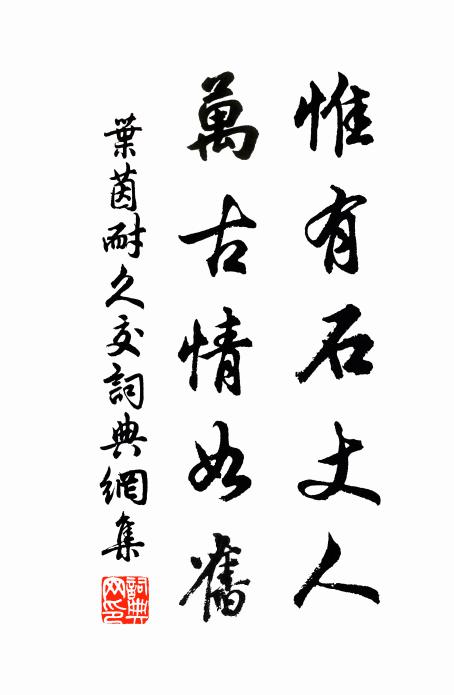 惟有石丈人
萬古情如舊
葉茵耐久交詞典網集
詞典网印